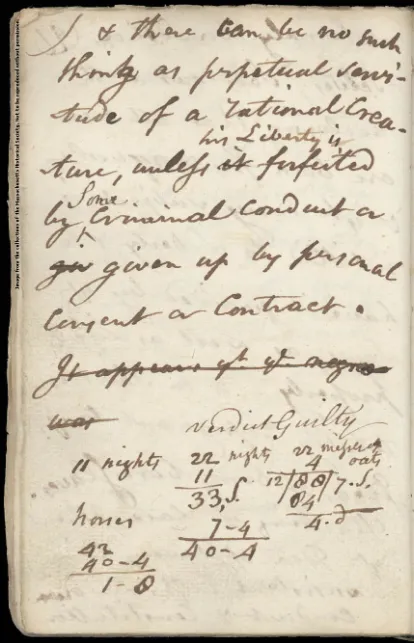 & there can be no such
thing as perpetual servi-
tude of a rational Crea-
his Liberty is
ture, unless it forfeited
Some
by Criminal Conduct or
giv given up by personal
Consent or Contract.
It appears yt ye negro
was
Verdict Guilty
11 nights 22 nights 22 mess of oats
11 4
33,S. 12/88/7.S.
84
horses 7-4 4.d
42 40-4
40-4
1-8
Image from the collections of the Massachusetts Historical Society. Not to be reproduced without permission.